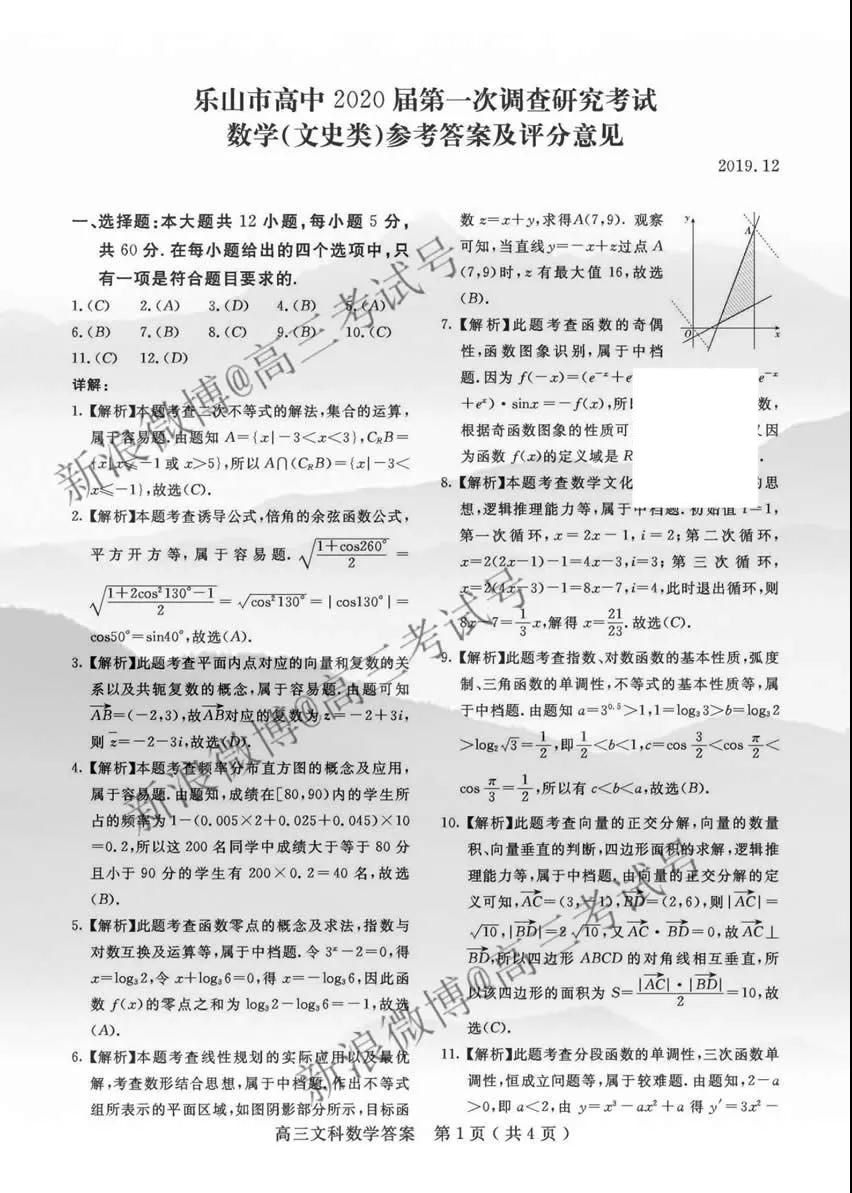 乐山市高中 2020 届第一次调查研究考试
数学(文史类)参考答案及评分意见
2019.12
一、选择题:本大题共 12 小题,每小题 5 分,
共 60 分.在每小题给出的四个选项中,只
有一项是符合题目要求的.
1.(C) 2.(A) 3.(D) 4.(B) 5.(A)
6.(B) 7.(B) 8.(C) 9.(B) 10.(C)
11.(C) 12.(D)
详解:
1.【解析】本题考查二次不等式的解法,集合的运算,
属于容易题.由题知 A={x|-3<x<3},C_RB=
{x|x≤-1 或 x>5},所以 A∩(C_RB)={x|-3<
x≤-1},故选(C).
2.【解析】本题考查诱导公式,倍角的余弦函数公式,
平方开方等,属于容易题. √((1+cos260°)/2) =
√((1+2cos²130°-1)/2) = √(cos²130°) = |cos130°| =
cos50°=sin40°,故选(A).
3.【解析】此题考查平面内点对应的向量和复数的关
系以及共轭复数的概念,属于容易题.由题可知
AB=(-2,3),故AB对应的复数为 z=-2+3i,
则 z̄=-2-3i,故选(D).
4.【解析】本题考查频率分布直方图的概念及应用,
属于容易题.由题知,成绩在[80,90)内的学生所
占的频率为 1-(0.005×2+0.025+0.045)×10
=0.2,所以这 200 名同学中成绩大于等于 80 分
且小于 90 分的学生有 200×0.2=40 名,故选
(B).
5.【解析】此题考查函数零点的概念及求法,指数与
对数互换及运算等,属于中档题.令 3ˣ-2=0,得
x=log₃2,令 x+log₃6=0,得 x=-log₃6,因此函
数 f(x)的零点之和为 log₃2-log₃6=-1,故选
(A).
6.【解析】本题考查线性规划的实际应用以及最优
解,考查数形结合思想,属于中档题.作出不等式
组所表示的平面区域,如图阴影部分所示,目标函
数 z=x+y,求得A(7,9). 观察
可知,当直线 y=-x+z过点 A
(7,9)时,z 有最大值 16,故选
(B).
y
A
O
x
7.【解析】此题考查函数的奇偶
性,函数图象识别,属于中档
题.因为 f(-x)=(e⁻ˣ+e e⁻ˣ
+eˣ)·sinx=-f(x),所 数,
根据奇函数图象的性质可 因
为函数 f(x)的定义域是 R .
8.【解析】本题考查数学文化 的思
想,逻辑推理能力等,属于中档题.初始值 i=1,
第一次循环,x=2x-1,i=2;第二次循环,
x=2(2x-1)-1=4x-3,i=3;第三次循环,
x=2(4x-3)-1=8x-7,i=4,此时退出循环,则
8x-7=1/3x,解得 x=21/23.故选(C).
9.【解析】此题考查指数、对数函数的基本性质,弧度
制、三角函数的单调性,不等式的基本性质等,属
于中档题.由题知 a=3⁰·⁵>1,1=log₃3>b=log₃2
>log₃√3=1/2,即1/2<b<1,c=cos 3/2<cos π/2<
cos π/3=1/2,所以有 c<b<a,故选(B).
10.【解析】此题考查向量的正交分解,向量的数量
积、向量垂直的判断,四边形面积的求解,逻辑推
理能力等,属于中档题.由向量的正交分解的定
义可知,AC=(3,-1),BD=(2,6),则|AC|=
√10,|BD|=2√10,又AC·BD=0,故AC⊥
BD,所以四边形 ABCD 的对角线相互垂直,所
以该四边形的面积为 S=|AC|·|BD|/2=10,故
选(C).
11.【解析】此题考查分段函数的单调性,三次函数单
调性,恒成立问题等,属于较难题.由题知,2-a
>0,即 a<2,由 y=x³-ax²+a 得 y′=3x²-
高三文科数学答案 第 1 页(共 4 页)
新浪微博@高三考试号
新浪微博@高三考试号
新浪微博@高三考试号